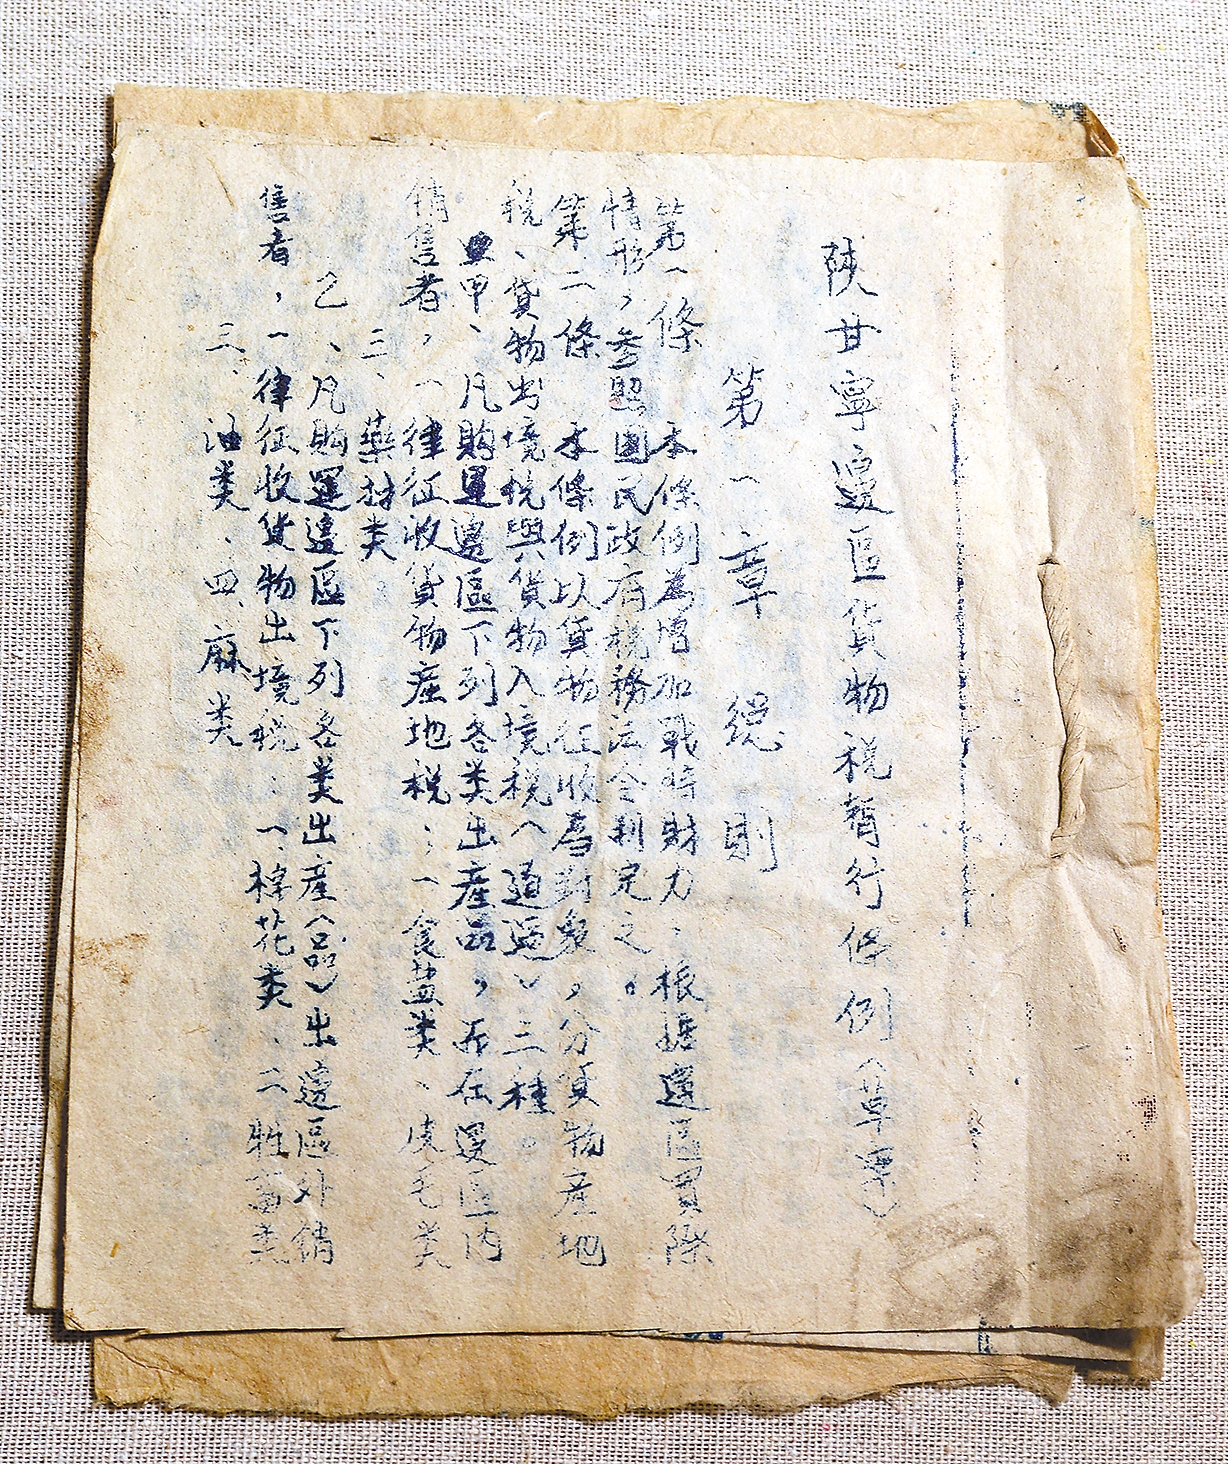 陝甘寧邊區貨物稅暫行條例（草案）
第一章　總則
第一條　本條例為增加戰時財力、根據邊區實際
情形，參照國民政府稅務法令制定之。
第二條　本條例以貨物征收為對象，分貨物產地
稅、貨物出境稅與貨物入境稅（通過）三種。
甲、凡購運邊區下列各类出產品，而在邊區内
銷售者，一律征收貨物產地稅：一食盐类、皮毛类
三、藥材类
乙、凡購運邊區下列各类出產（品）出邊區外銷
售者，一律征收貨物出境稅：一、棉花类、二牲畜类
三、油类、四、麻类